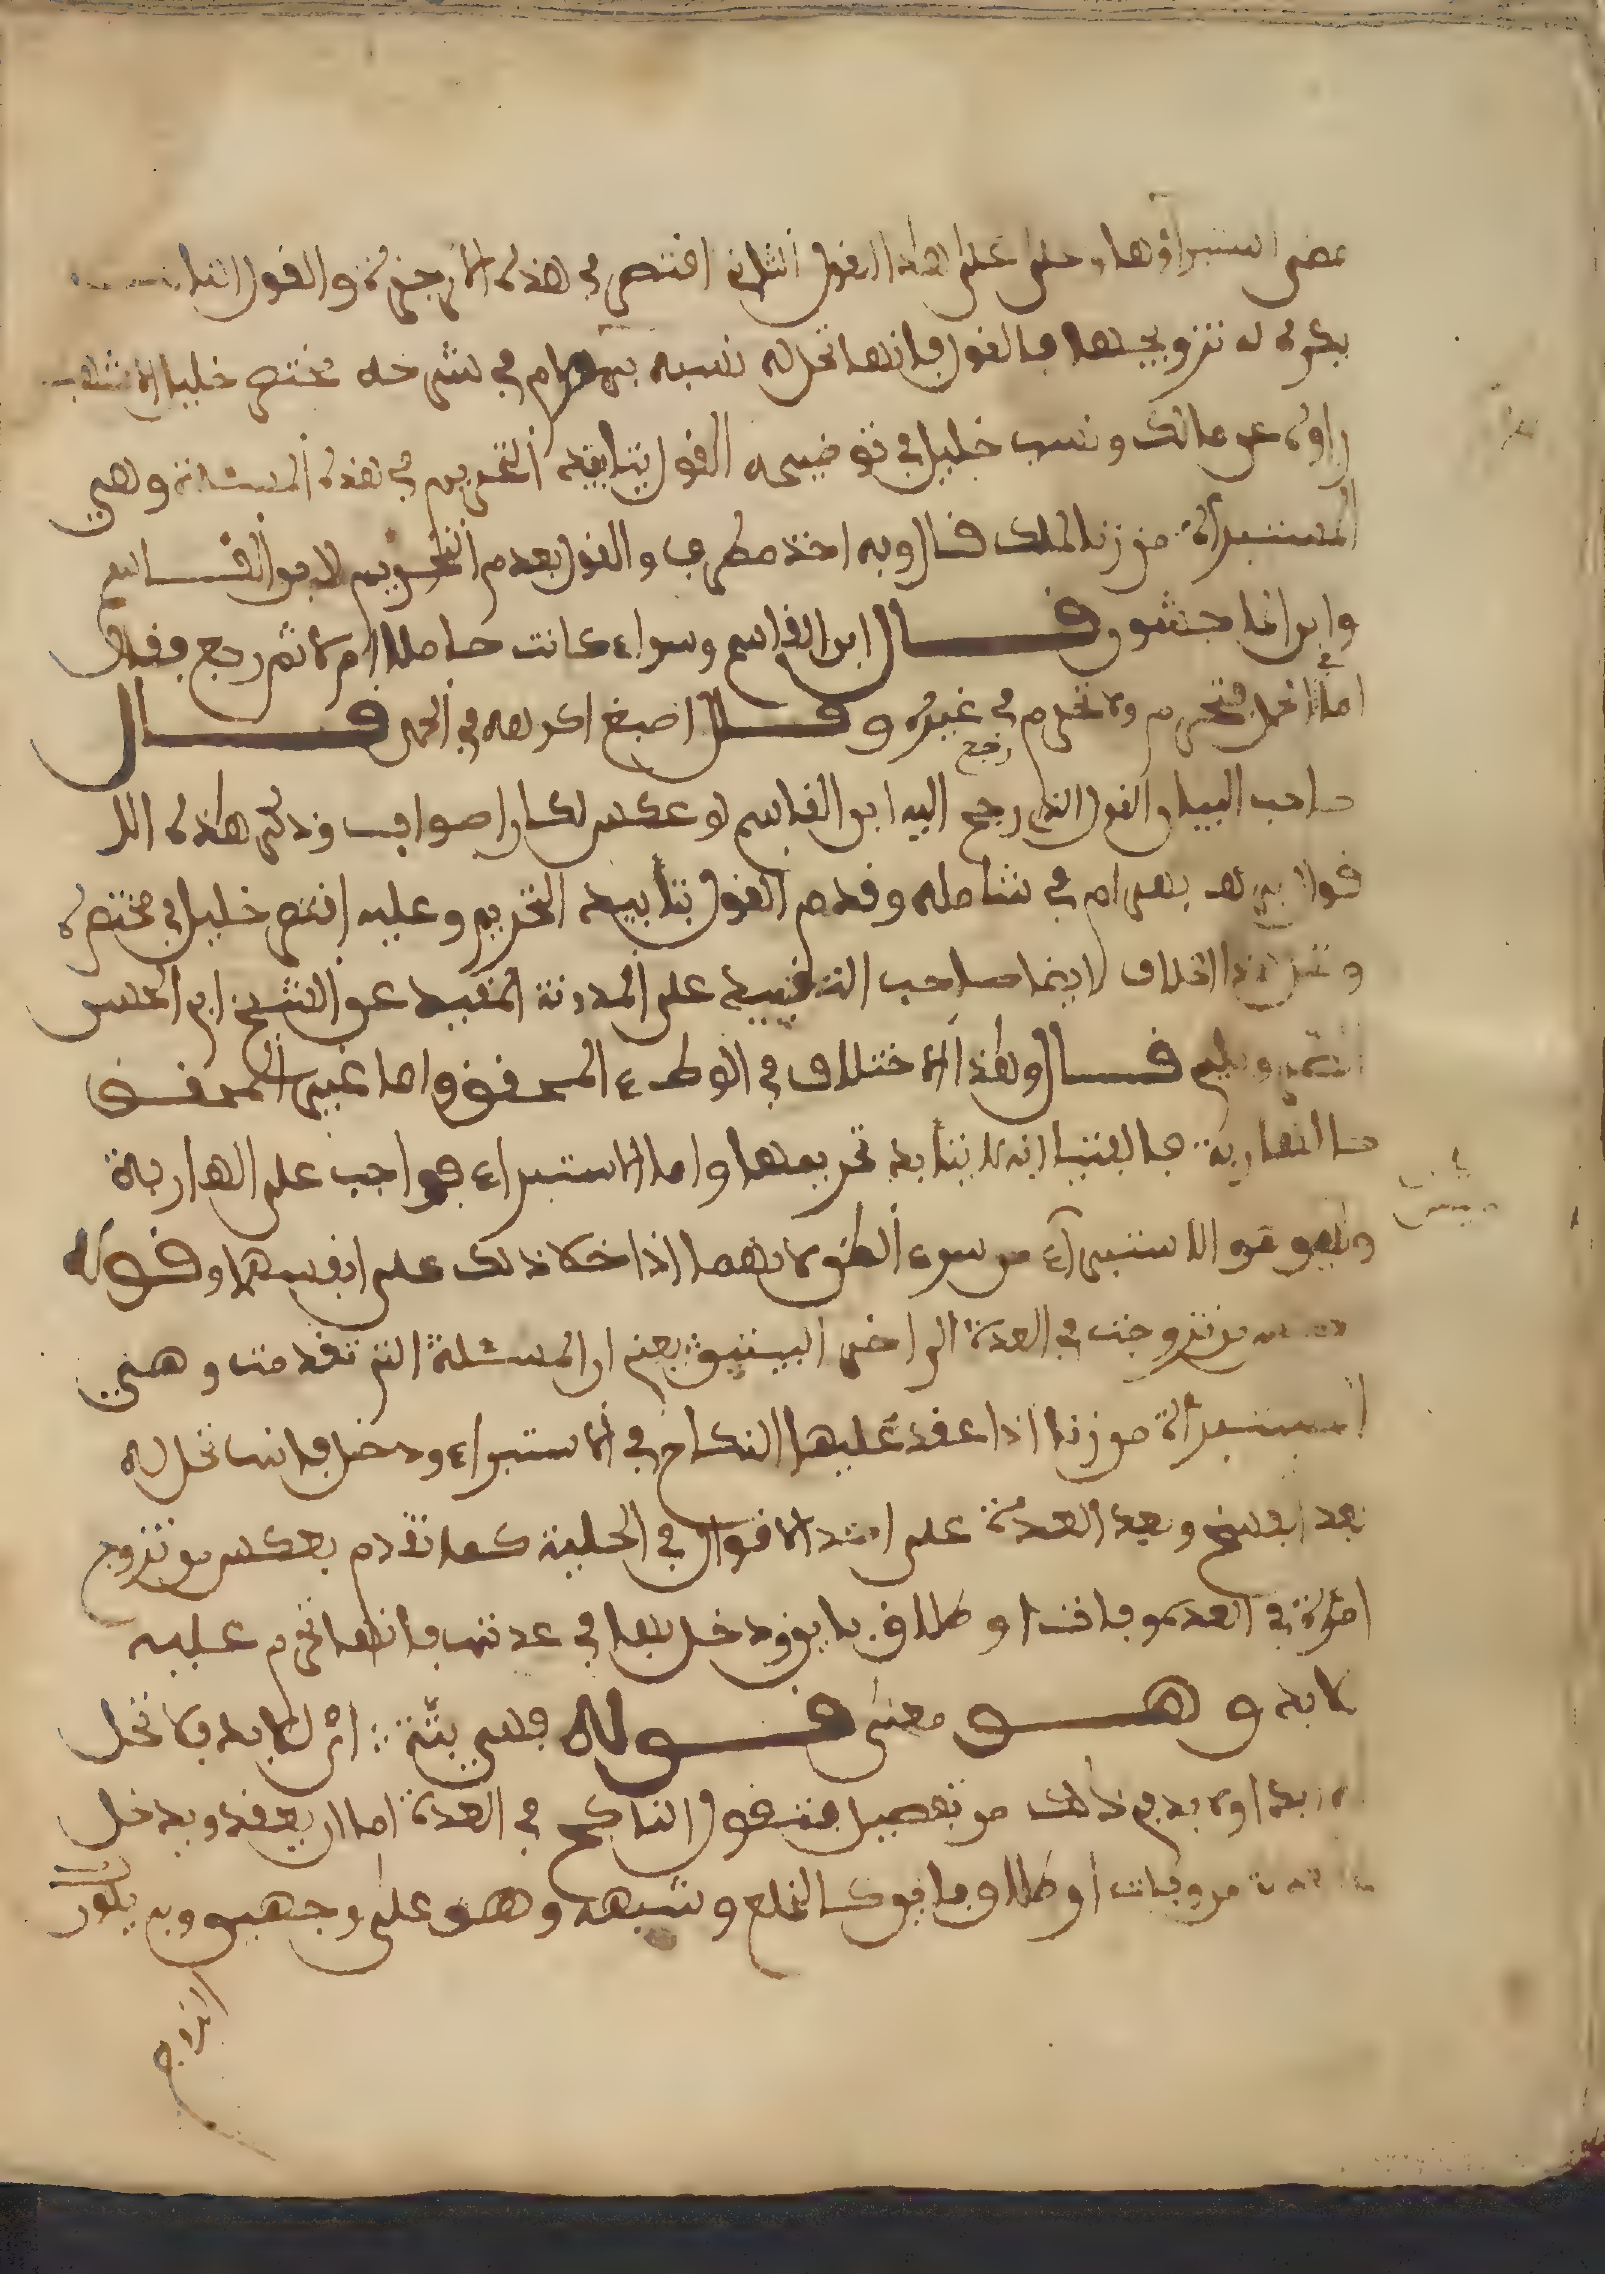 مضى استبراؤها وعلى هذا القول الثاني اقتصر في هذه الارجزة والقول الثا
يكره له تزويجها فالقول بانها تحل له نسبه بهرام في شرحه مختصر خليل لاشهب
راوه عن مالك ونسب خليل في توضيحه القول بتابيد التحريم في هذه المسئلة وهي
المستبراة من زنا لملك قال وبه اخذ مطرف والقول بعدم التحريم لابن القاسم
وابن الماجشون وقال ابن القاسم وسواء كانت حاملا ام لا ثم رجع فقال
اما في الحمل فتحرم ولا تحرم في غيره وقال اصبغ اكرهه في الحمل قال
صاحب البيان القول الذي رجع اليه ابن القاسم لو عكس لكان اصواب وذكر هذه الا
رجع
قوال بهرام في شامله وقدم القول بتابيد التحريم وعليه اقتصر خليل في مختصره
ونقل هذا الخلاف ايضا صاحب التقييد على المدونة المقيد عن الشيخ ابي الحسن
قال وهذا الاختلاف في الوطء المحقق واما غير المحقق
كالهاربة فالفتيا انه لا يتابد تحريمها واما الاستبراء فواجب على الهاربة
وهو الاستبراء من سوء الظن لانهما اذا خلا ذلك على انفسهما وقوله
من تزوجت في العدة الى اخر البيتين يعني ان المسئلة التي تقدمت وهي
المستبراة من زنا اذا عقد عليها النكاح في الاستبراء ودخل فانها تحل له
بعد الفسخ وبعد العدة على احد الاقوال في الحلية كما تقدم بعكس من تزوج
امراة في العدة من وفات او طلاق باين ودخل بها في عدتها فانها تحرم عليه
لابد وهو معنى قوله فهي بتة: اثر الابد فلا تحل
ابدا ولا بد في ذلك من تفصيل فتقول الناكح في العدة اما ان يعقد ويدخل
من وفات او طلاق باين كالخلع وشبهه وهو على وجهين وبه يكون
الزوج